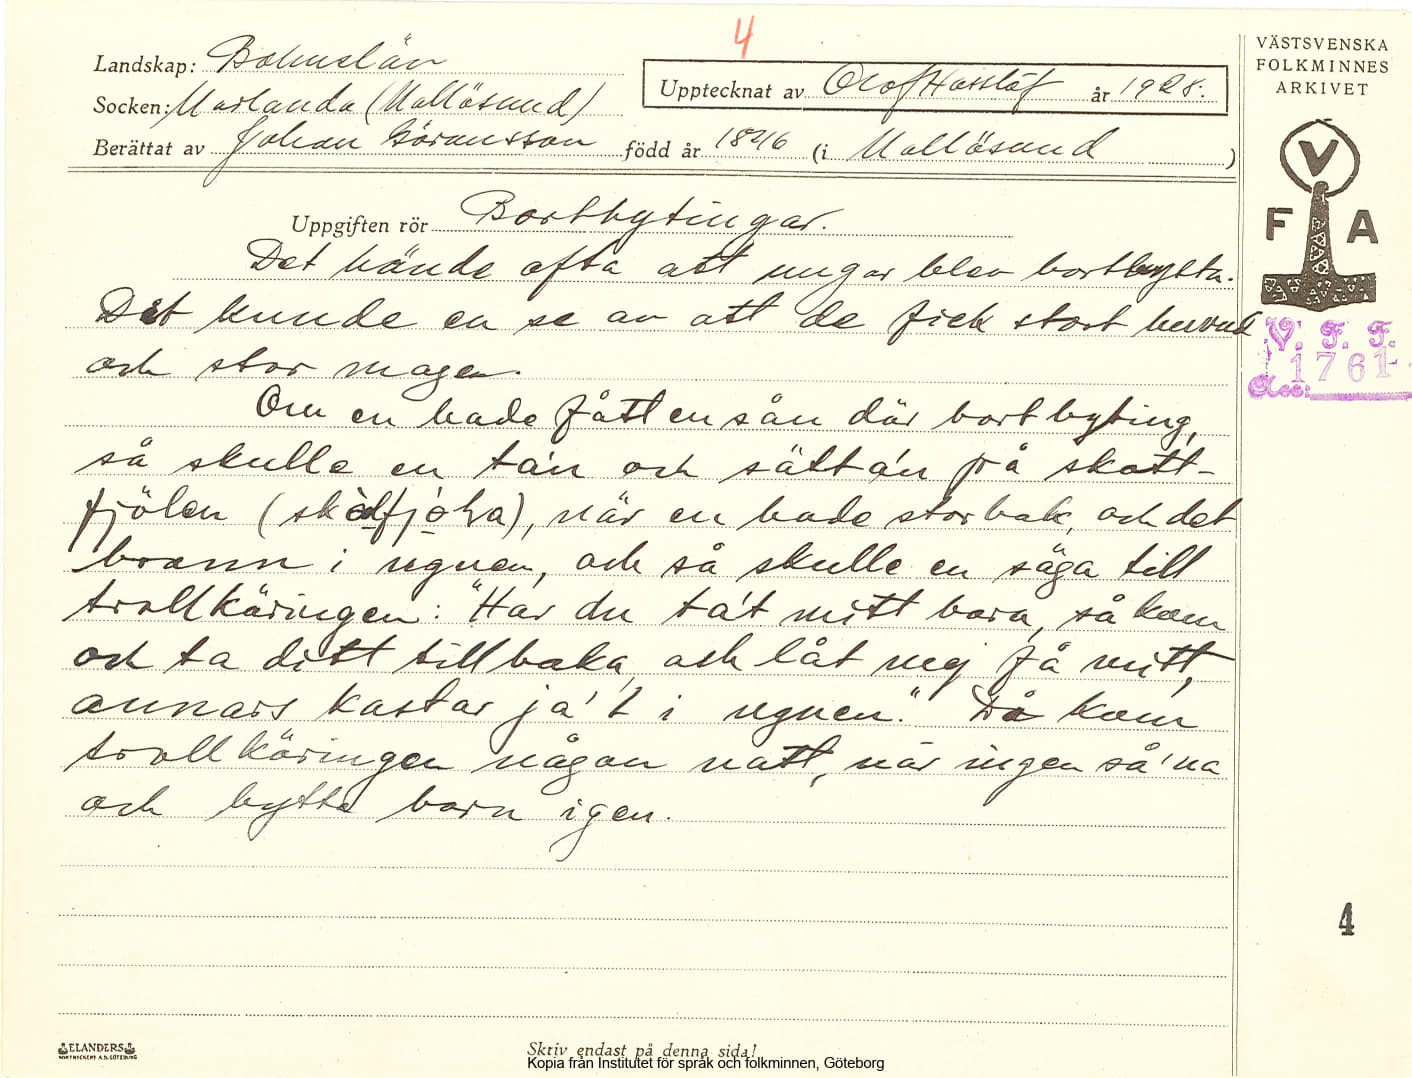 4
Landskap: Bohuslän
Socken: Morlanda (Mollösund)
Berättat av Johan Göransson född år 1846 (i Mollösund)
Upptecknat av Olof Hasslöf år 1928.
VÄSTSVENSKA
FOLKMINNES
ARKIVET
V
F A
V. F. F.
Acc: 1761
Uppgiften rör Bortbytingar.
Det hände ofta att ungar blev bortbytta.
Det kunde en se av att de fick stort huvud
och stor mage.
Om en hade fått en sån där bortbyting,
så skulle en ta'n och sätta'n på skott-
fjölen (       ), när en hade storbak, och det
brann i ugnen, och så skulle en säga till
trollkäringen: "Har du ta't mitt barn, så kom
och ta ditt tillbaka, och låt mej få mitt,
annars kastar ja't i ugnen." Då kom
trollkäringen någon natt, när ingen så'na
och bytte barn igen.
4
ELANDERS
Skriv endast på denna sida!
Kopia från Institutet för språk och folkminnen, Göteborg